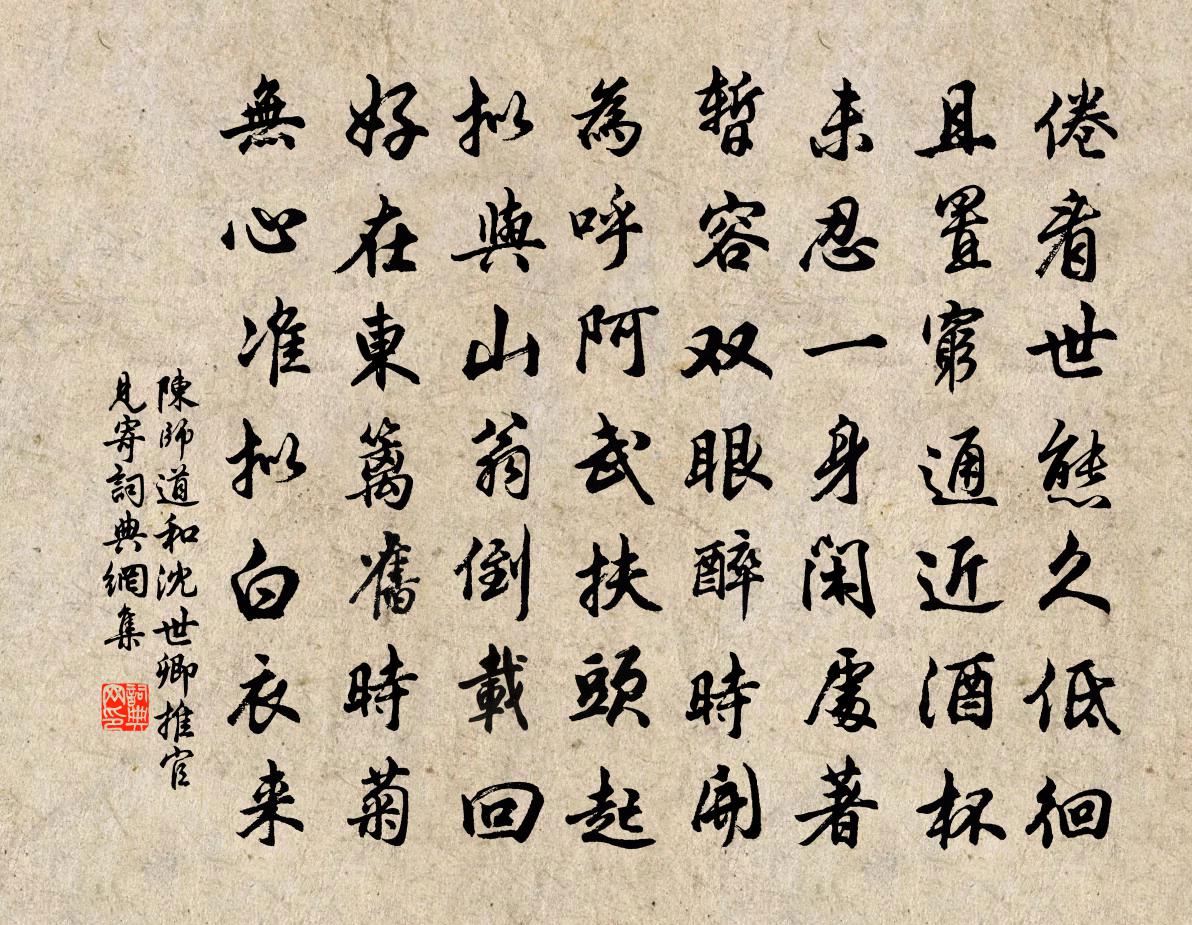 倦看世態久低徊
且置窮通近酒杯
未忍一身閑處著
暫容双眼醉時開
為呼阿武扶頭起
拟與山翁倒載回
好在東篱舊時菊
無心准拟白衣来
陳師道和沈世卿推官
見寄詞典網集
詞典网印